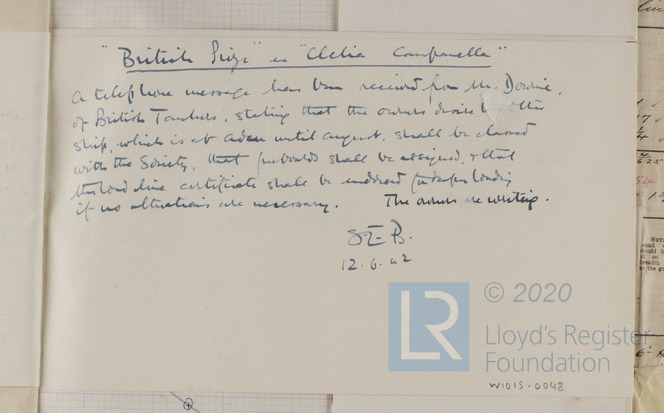 "British Prize" ex "Clelia Campanella"
A telephone message has been received from Mr. Downie,
of British Tankers, stating that the owners desire the
ship, which is at Aden until August, shall be classed
with the Society, that freeboards shall be assigned, & that
the load line certificate shall be endorsed for deeper loading
if no alterations are necessary. The owners are writing.
S.E.B.
12.6.42
LR
© 2020
Lloyd's Register
Foundation
W1015-0048